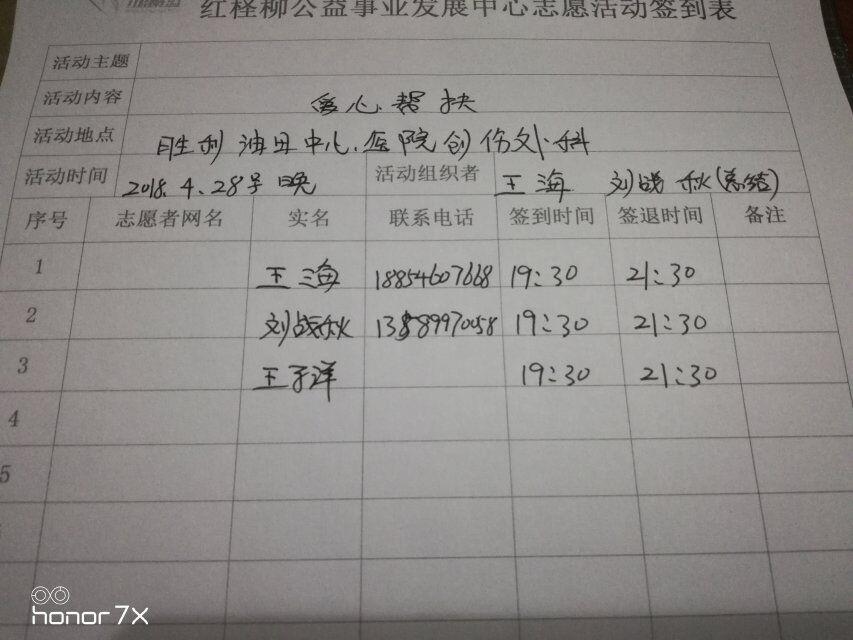 红柽柳公益事业发展中心志愿活动签到表
活动主题
活动内容 爱心帮扶
活动地点 胜利油田中心医院创伤外科
活动时间 2018.4.28号晚 活动组织者 王海 刘战秋(总结)
序号 志愿者网名 实名 联系电话 签到时间 签退时间 备注
1 王海 18854607668 19:30 21:30
2 刘战秋 13589970058 19:30 21:30
3 王子洋 19:30 21:30
4
5
honor 7X